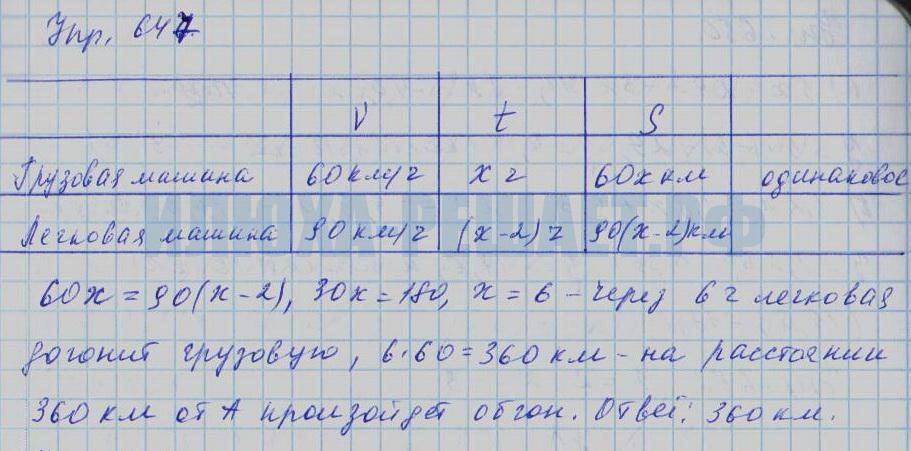 Упр. 647.
V t S
Грузовая машина 60 км/ч x ч 60x км одинаковое
ИЛЮХА-РЕШАЕТ.РФ
Легковая машина 90 км/ч (x-2) ч 90(x-2) км
60x = 90(x-2), 30x = 180, x = 6 - через 6 ч легковая
догонит грузовую, 6·60 = 360 км - на расстоянии
360 км от А произойдет обгон. Ответ: 360 км.